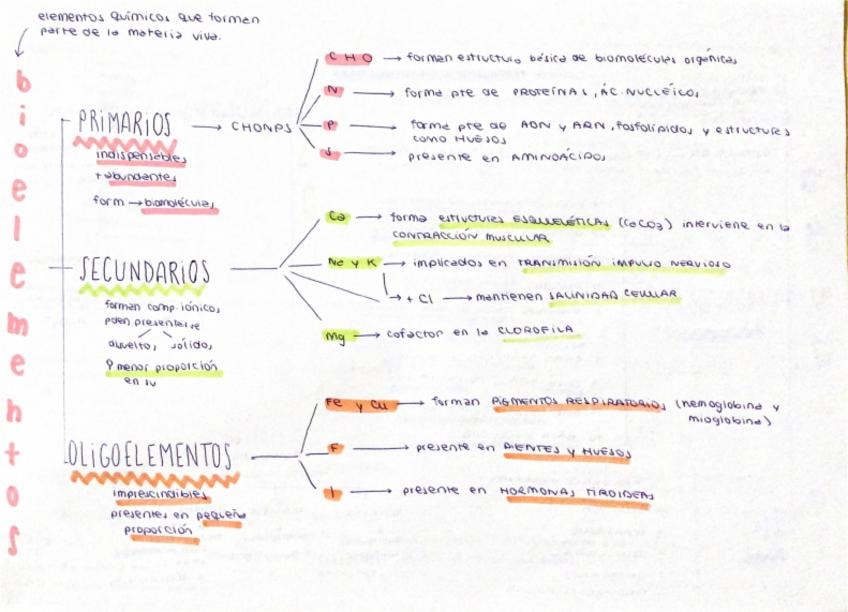 elementos químicos que forman
parte de la materia viva.
bioelementos
PRIMARIOS → CHONPS
indispensables
+ abundantes
form → biomoléculas
C H O → forman estructura básica de biomoléculas orgánicas
N → forma pte de PROTEÍNAS, ÁC. NUCLÉICOS
P → forma pte de ADN y ARN, fosfolípidos y estructuras
como HUESOS
S → presente en AMINOÁCIDOS
SECUNDARIOS
forman comp. iónicos,
disueltos, sólidos,
menor proporción
Ca → forma estructuras ESQUELÉTICAS (CaCO3) interviene en la
CONTRACCIÓN MUSCULAR
Na y K → implicados en TRANSMISIÓN IMPULSO NERVIOSO
→ + Cl → mantienen SALINIDAD CELULAR
Mg → cofactor en la CLOROFILA
OLIGOELEMENTOS
imprescindibles
presentes en pequeña
proporción
Fe y Cu → forman PIGMENTOS RESPIRATORIOS (hemoglobina y
mioglobina)
F → presente en DIENTES y HUESOS
I → presente en HORMONAS TIROIDEAS